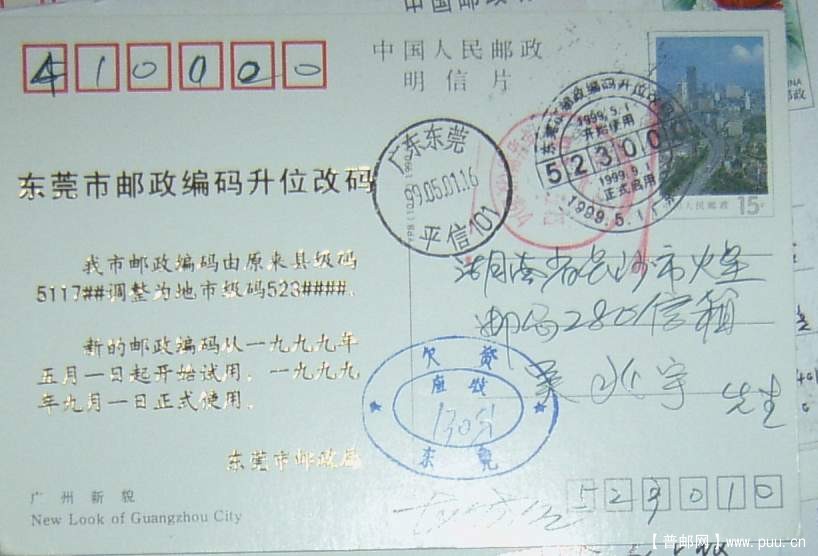 中国邮政
410000
中国人民邮政
明信片
东莞市邮政编码升位改码
1999.5.1
开始使用
523000
1999.9.1
正式启用
1999.5.1
中国人民邮政
15分
广东东莞
99.05.01.16
平信101
东莞市邮政编码升位改码
我市邮政编码由原来县级码
5117##调整为地市级码523####.
新的邮政编码从一九九九年
五月一日起开始试用，一九九九
年九月一日正式使用。
东莞市邮政局
湖南省长沙市火星
邮局280信箱
先生
欠资
应收
130分
东莞
广州新貌
New Look of Guangzhou City
523010
【普邮网】www.puu.cn